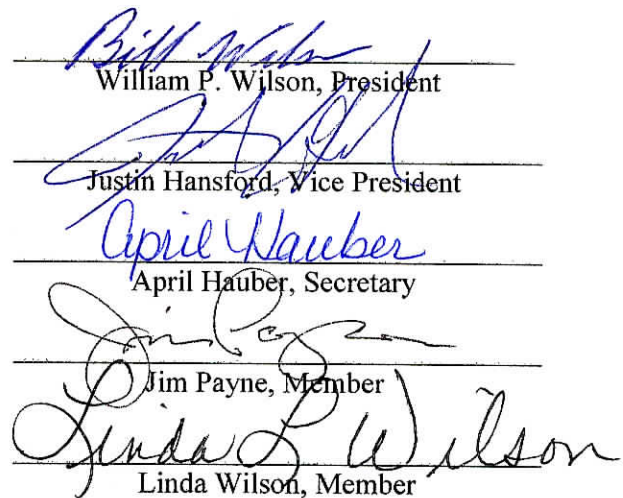 Bill Wilson
William P. Wilson, President
Justin Hansford, Vice President
April Hauber
April Hauber, Secretary
Jim Payne
Jim Payne, Member
Linda L Wilson
Linda Wilson, Member